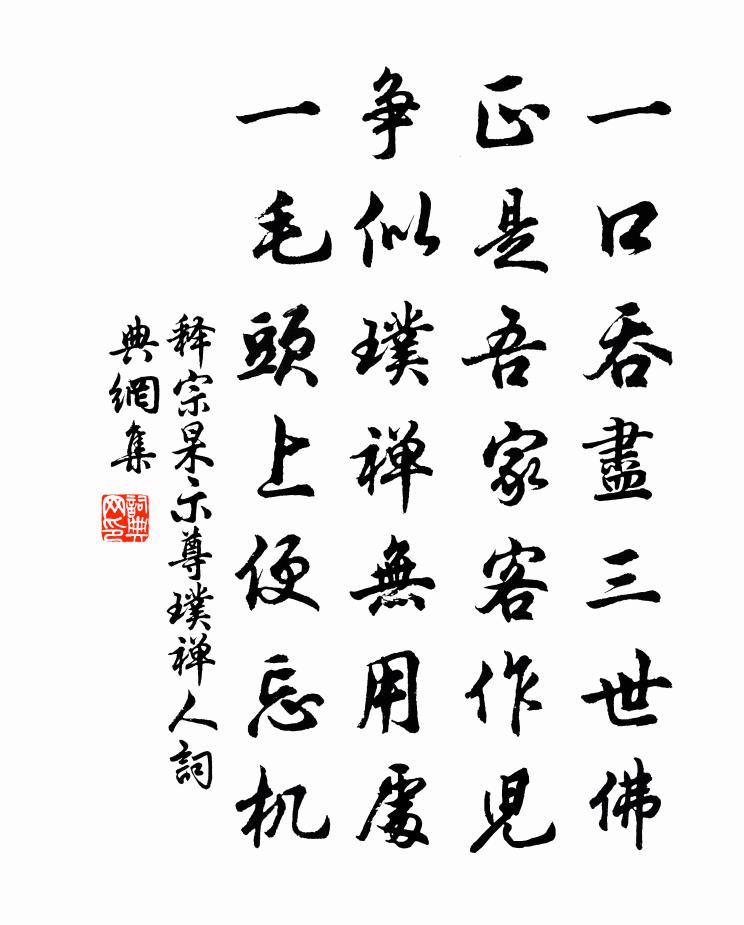 一口吞盡三世佛
正是吾家客作児
争似璞禅無用處
一毛頭上便忘机
释宗杲示尊璞禅人詞
典網集
詞典网印